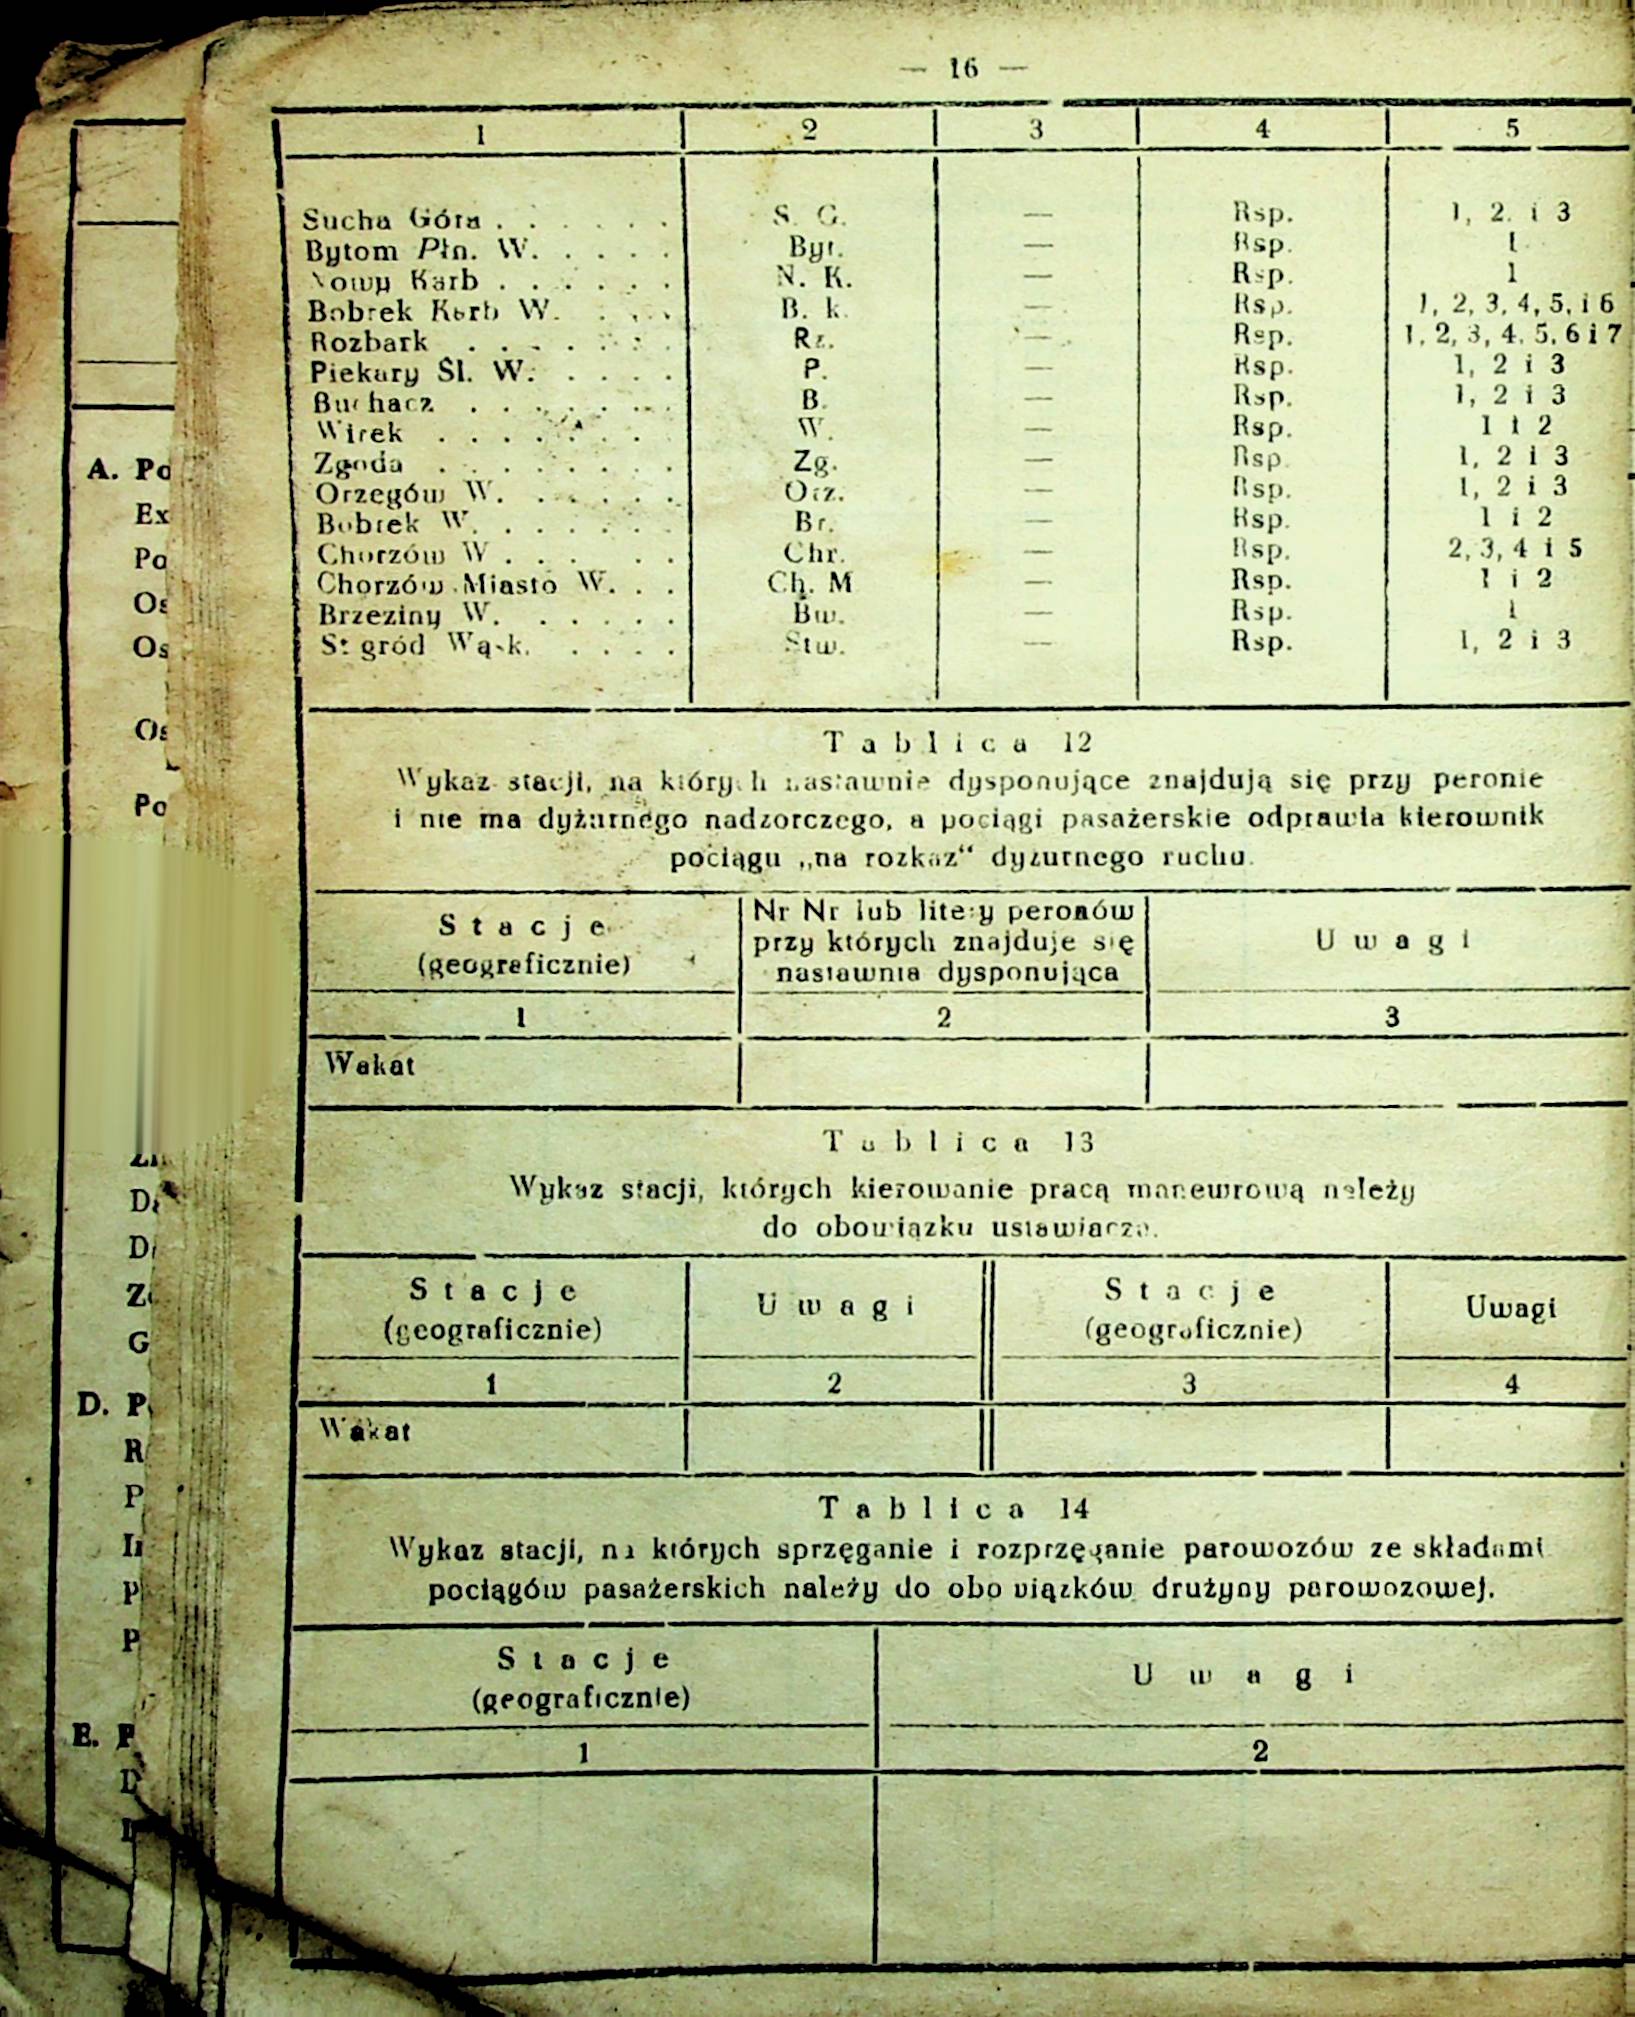 — 16 —
1 2 3 4 5
Sucha Góra . . . . . . S. G. — Rsp. 1, 2. i 3
Bytom Płn. W. . . . . Byt. — Rsp. 1
Nowy Karb . . . . . . N. K. — Rsp. 1
Bobrek Karb W. . . . . B. k. — Rsp. 1, 2, 3, 4, 5, i 6
Rozbark . . . . . . . Rz. — Rsp. 1, 2, 3, 4, 5, 6 i 7
Piekary Śl. W. . . . . P. — Rsp. 1, 2 i 3
Buchacz . . . . . . . B. — Rsp. 1, 2 i 3
Wirek . . . . . . . . W. — Rsp. 1 i 2
Zgoda . . . . . . . . Zg. — Rsp. 1, 2 i 3
Orzegów W. . . . . . Orz. — Rsp. 1, 2 i 3
Bobrek W. . . . . . . Br. — Rsp. 1 i 2
Chorzów W . . . . . . Chr. — Rsp. 2, 3, 4 i 5
Chorzów Miasto W. . . Ch. M — Rsp. 1 i 2
Brzeziny W. . . . . . Bw. — Rsp. 1
St gród Wąsk. . . . . Stw. — Rsp. 1, 2 i 3
Tablica 12
Wykaz stacji, na których nastawnie dysponujące znajdują się przy peronie
i nie ma dyżurnego nadzorczego, a pociągi pasażerskie odprawia kierownik
pociągu „na rozkaz“ dyżurnego ruchu.
Stacje
(geograficznie)
Nr Nr lub litery peronów
przy których znajduje się
nastawnia dysponująca
Uwagi
1 2 3
Wakat
Tablica 13
Wykaz stacji, których kierowanie pracą manewrową należy
do obowiązku ustawiacza.
Stacje
(geograficznie)
Uwagi
Stacje
(geograficznie)
Uwagi
1 2 3 4
Wakat
Tablica 14
Wykaz stacji, na których sprzęganie i rozprzęganie parowozów ze składami
pociągów pasażerskich należy do obowiązków drużyny parowozowej.
Stacje
(geograficznie)
Uwagi
1 2
A. Po
Ex
Po
Os
Os
Os
Po
D
D
Z
G
D. P
R
P
P
P
E. P
D